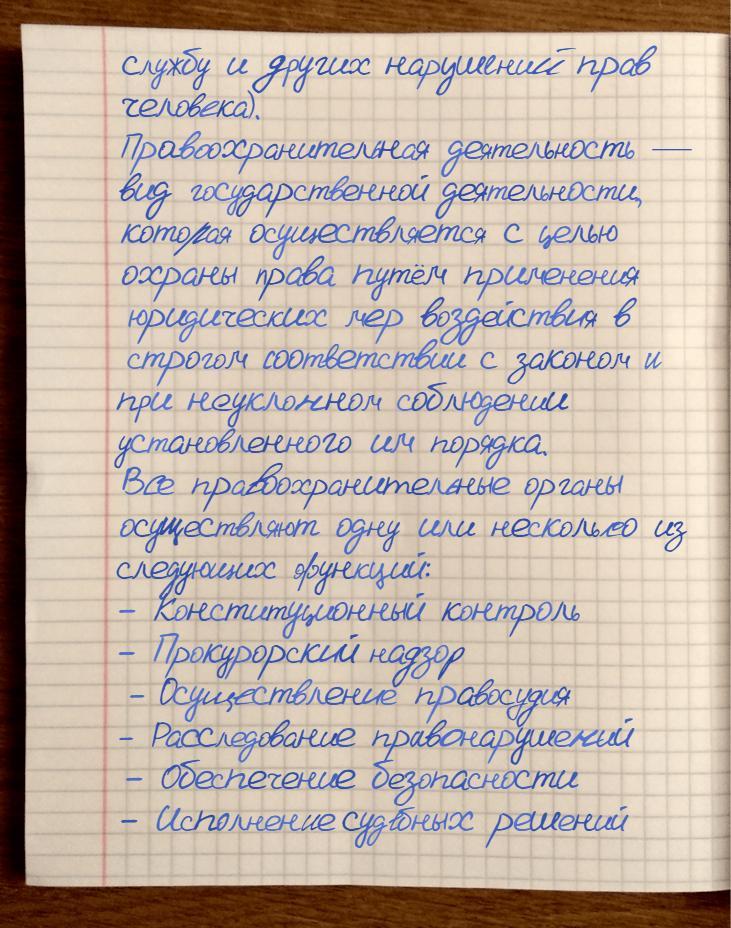 службу и других нарушений прав
человека).
Правоохранительная деятельность —
вид государственной деятельности,
которая осуществляется с целью
охраны права путём применения
юридических мер воздействия в
строгом соответствии с законом и
при неуклонном соблюдении
установленного им порядка.
Все правоохранительные органы
осуществляют одну или несколько из
следующих функций:
- Конституционный контроль
- Прокурорский надзор
- Осуществление правосудия
- Расследование правонарушений
- Обеспечение безопасности
- Исполнение судебных решений